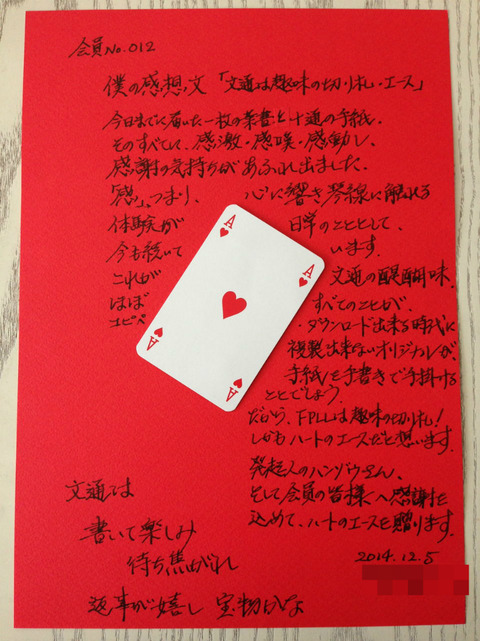 会員No.012
僕の感想文「文通は趣味の切り札・エース」
今日までに届いた一枚の葉書と十通の手紙。
そのすべてに、感激・感嘆・感動し、
感謝の気持ちがあふれ出ました。
「感」、つまり、 心に響き琴線に触れる
体験が 日常のこととして、
今も続いて います。
これが 文通の醍醐味。
ほぼ すべてのことが、
コピペ ・ダウンロード出来る時代に
複製出来ないオリジナルが、
手紙を手書きで手掛ける
ことでしょう。
だから、FPLLは趣味の切り札!
しかもハートのエースだと想います。
発起人のハンゾウさん、
そして会員の皆様へ感謝を
込めて、ハートのエースを贈ります。
2014.12.5
文通とは
書いて楽しみ
待ち焦がれ
返事が嬉し 宝物かな
A
A
A
A